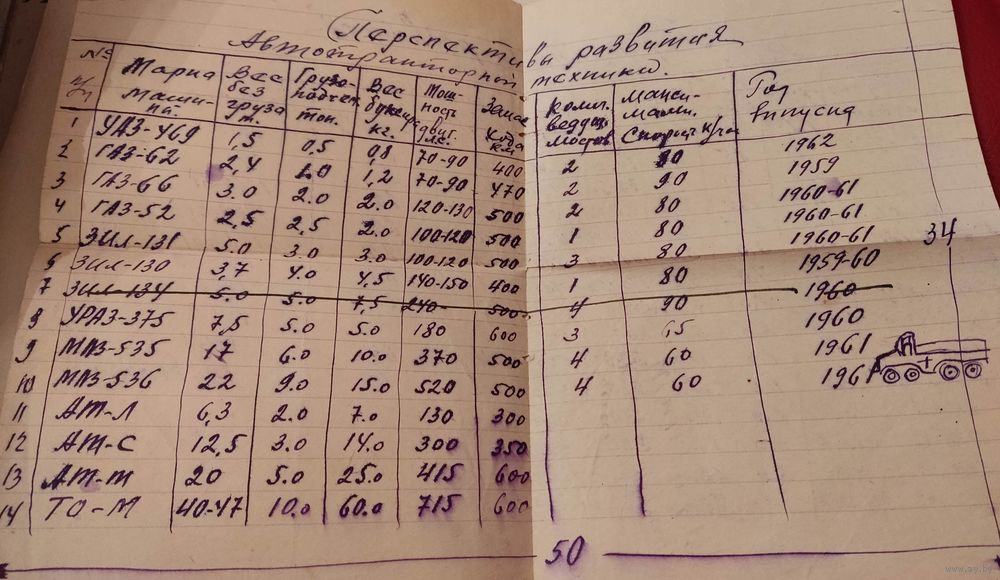 Перспективы развития
Автотракторной техники.
№ п/п Марка машины. Вес без груза т. Грузоподъем. тон. Вес букси. кг. Мощность двиг. л.с. Запас хода км колич. ведущ. мостов максимальн. Скорость к/ч Год выпуска
1 УАЗ-469 1,5 0,5 0,8 70-90 400 2 80 1962
2 ГАЗ-62 2,4 1.0 1,2 70-90 470 2 90 1959
3 ГАЗ-66 3.0 2.0 2.0 120-130 500 2 80 1960-61
4 ГАЗ-52 2,5 2,5 2.0 100-120 500 1 80 1960-61
5 ЗИЛ-131 5.0 3.0 3.0 100-120 500 3 80 1960-61
6 ЗИЛ-130 3,7 4.0 4,5 140-150 400 1 80 1959-60
7 ЗИЛ-134 5.0 5.0 7,5 240 500 4 90 1960
8 УРАЗ-375 7,5 5.0 5.0 180 600 3 65 1960
9 МАЗ-535 17 6.0 10.0 370 500 4 60 1961
10 МАЗ-536 22 9.0 15.0 520 500 4 60 1961
11 АТ-Л 6,3 2.0 7.0 130 300
12 АТ-С 12,5 3.0 14.0 300 350
13 АТ-т 20 5.0 25.0 415 600
14 ТО-М 40-47 10.0 60.0 715 600
34
50
www.ay.by